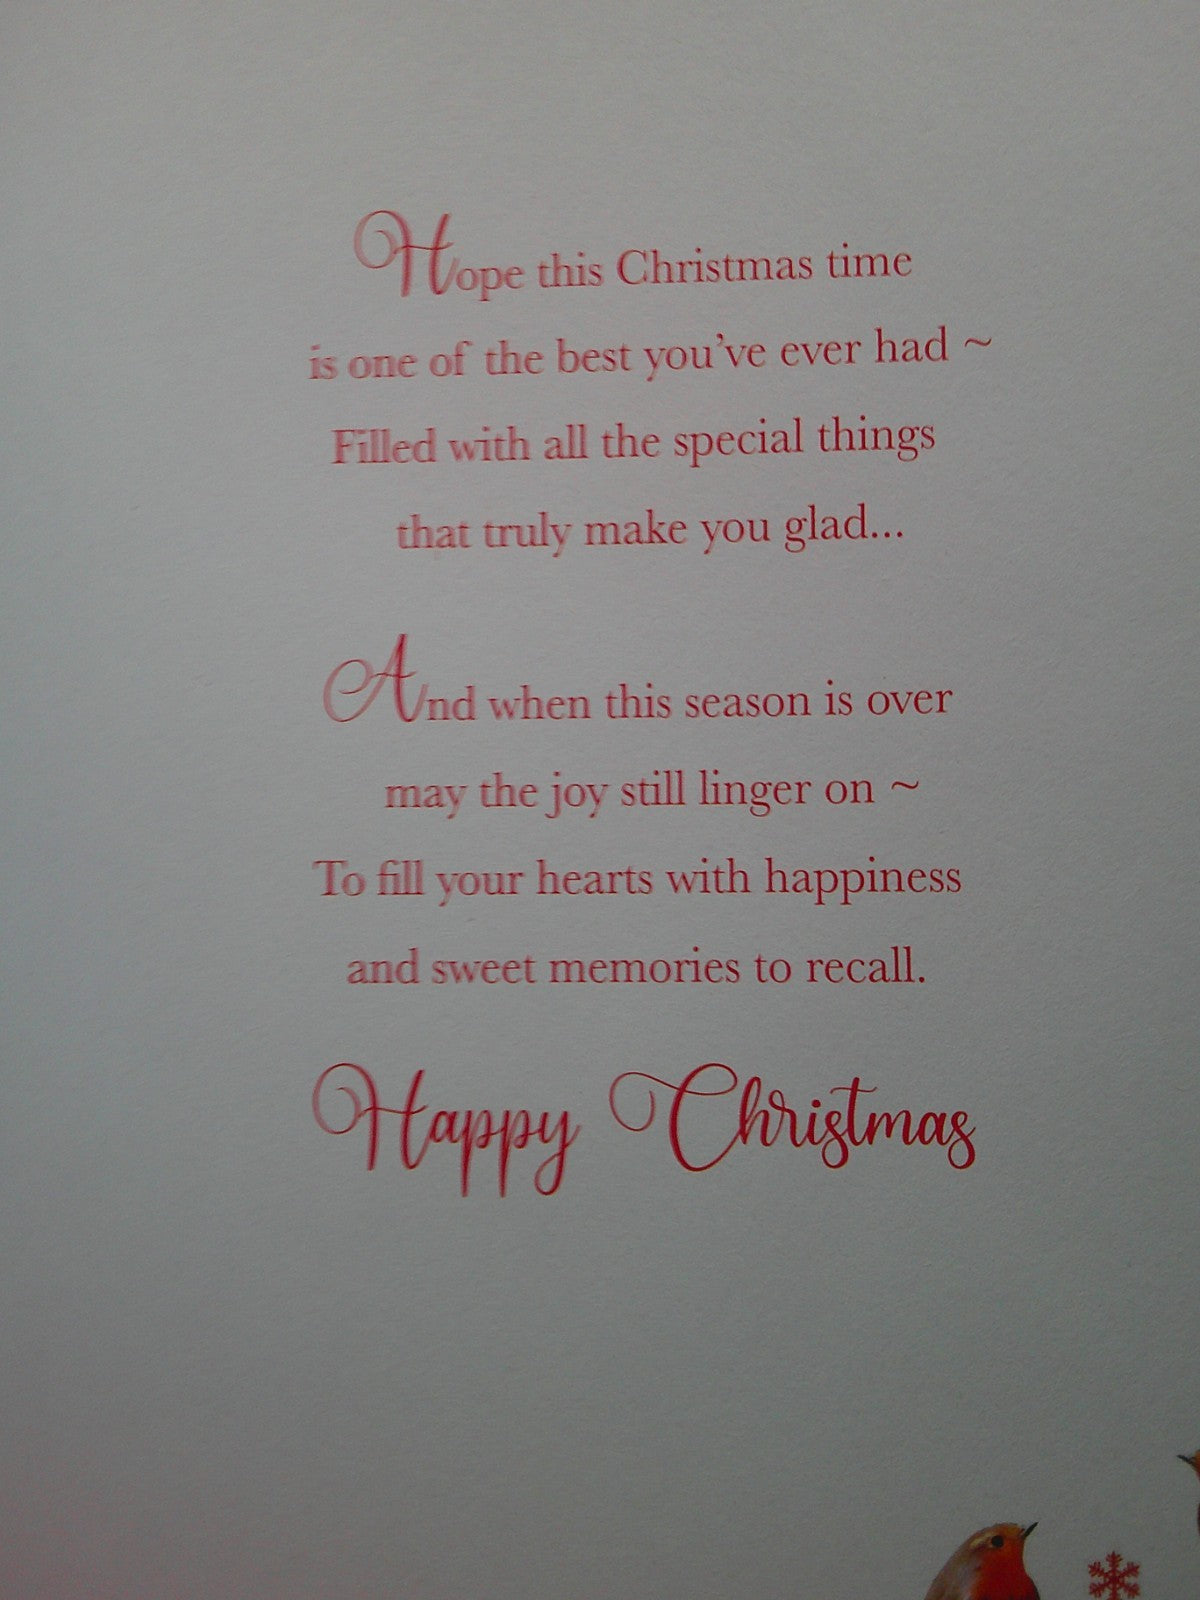 Hope this Christmas time
is one of the best you've ever had ~
Filled with all the special things
that truly make you glad...
And when this season is over
may the joy still linger on ~
To fill your hearts with happiness
and sweet memories to recall.
Happy Christmas